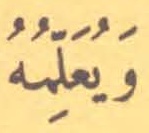 وَيُعَلِّمُهُ